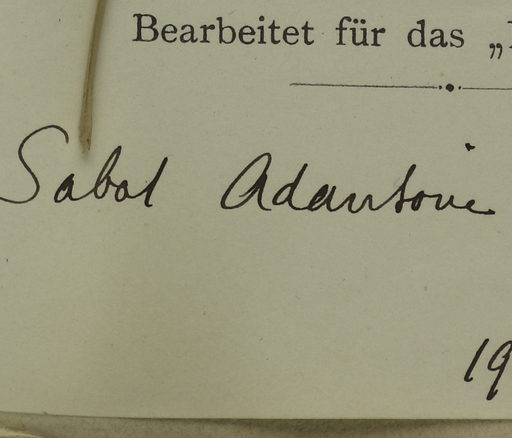 Bearbeitet für das „
Sabal Adansonii
19